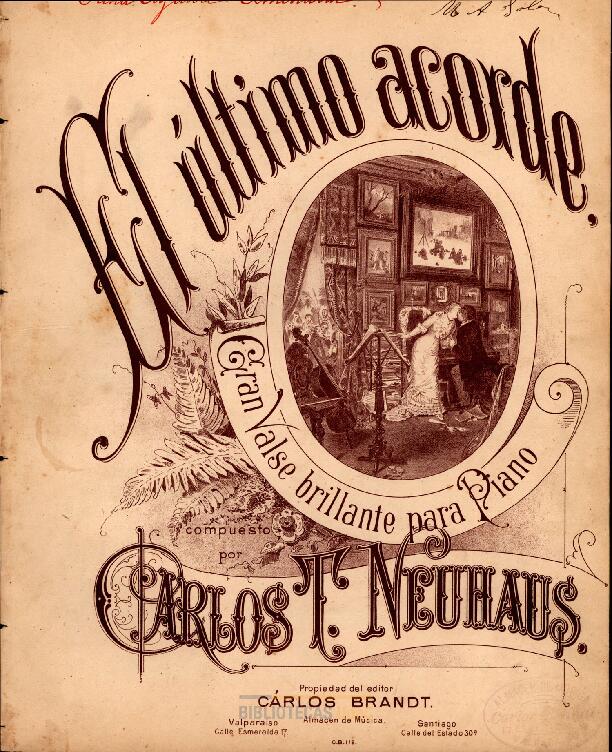 El último acorde,
Gran Valse brillante para Piano
compuesto
por
CARLOS T. NEUHAUS,
Propiedad del editor
CÁRLOS BRANDT.
BIBLIOTECAS
Almacen de Música.
Valparaiso
Calle Esmeralda 17.
Santiago
Calle del Estado 309
C.B. 118.